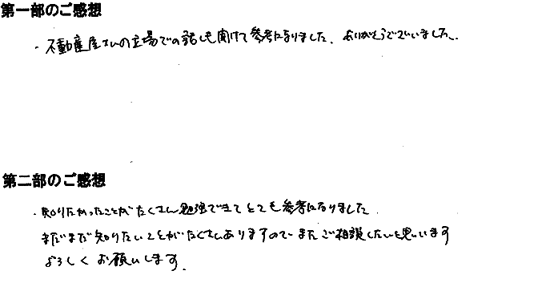 第一部のご感想
・不動産屋さんの立場での話しも聞けて参考になりました。ありがとうございました。
第二部のご感想
・知りたかったことがたくさん勉強できてとても参考になりました
まだまだ知りたいことがたくさんありますので、またご相談したいと思います
よろしくお願いします。